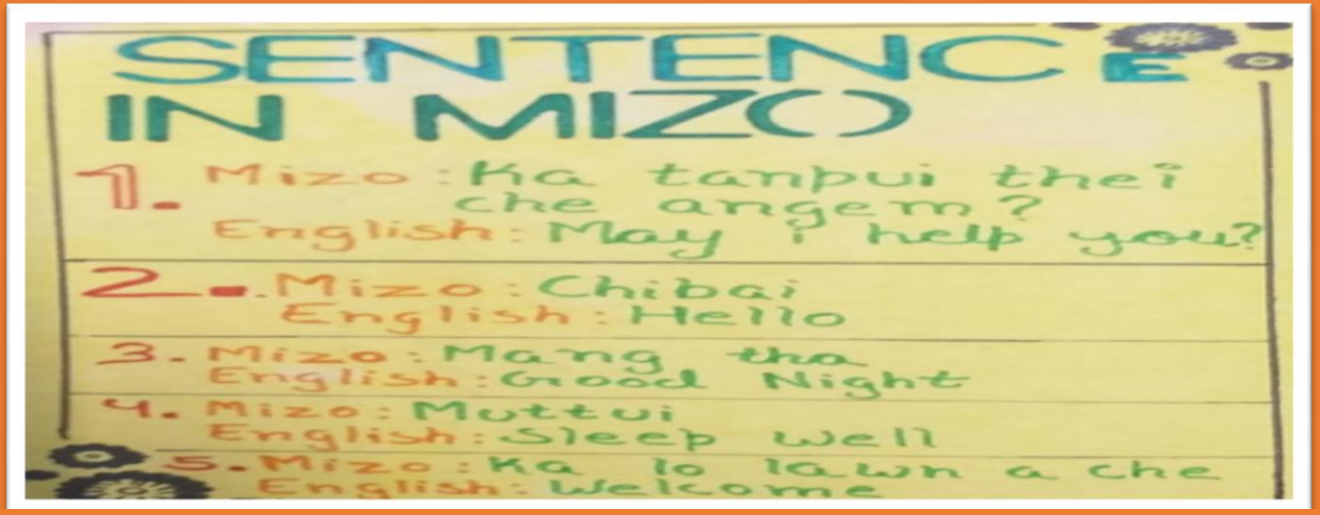 SENTENCE
IN MIZO
1. Mizo : Ka tanpui thei
che angem?
English : May i help you?
2. Mizo : Chibai
English : Hello
3. Mizo : Mang tha
English : Good Night
4. Mizo : Muttui
English : Sleep well
5. Mizo : Ka lo lawn a che
English : Welcome